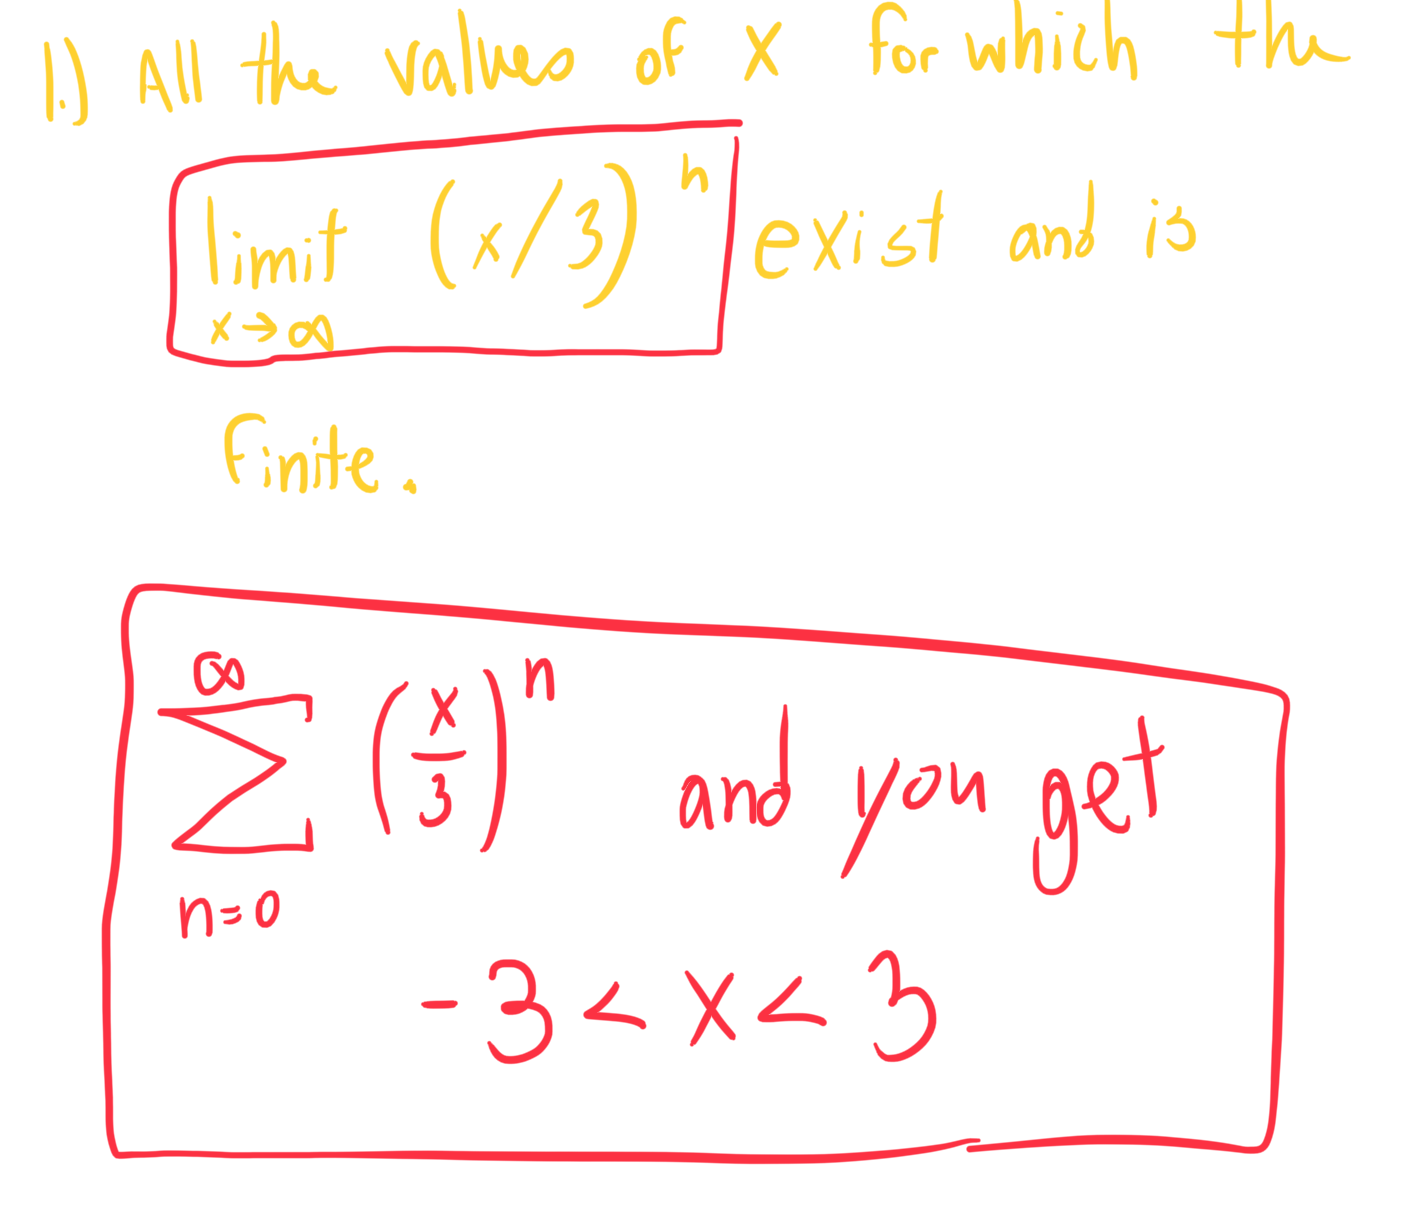 1.) All the values of x for which the
limit (x/3)^n exist and is
x→∞
finite.
∞
∑ (x/3)^n and you get
n=0
-3 < x < 3